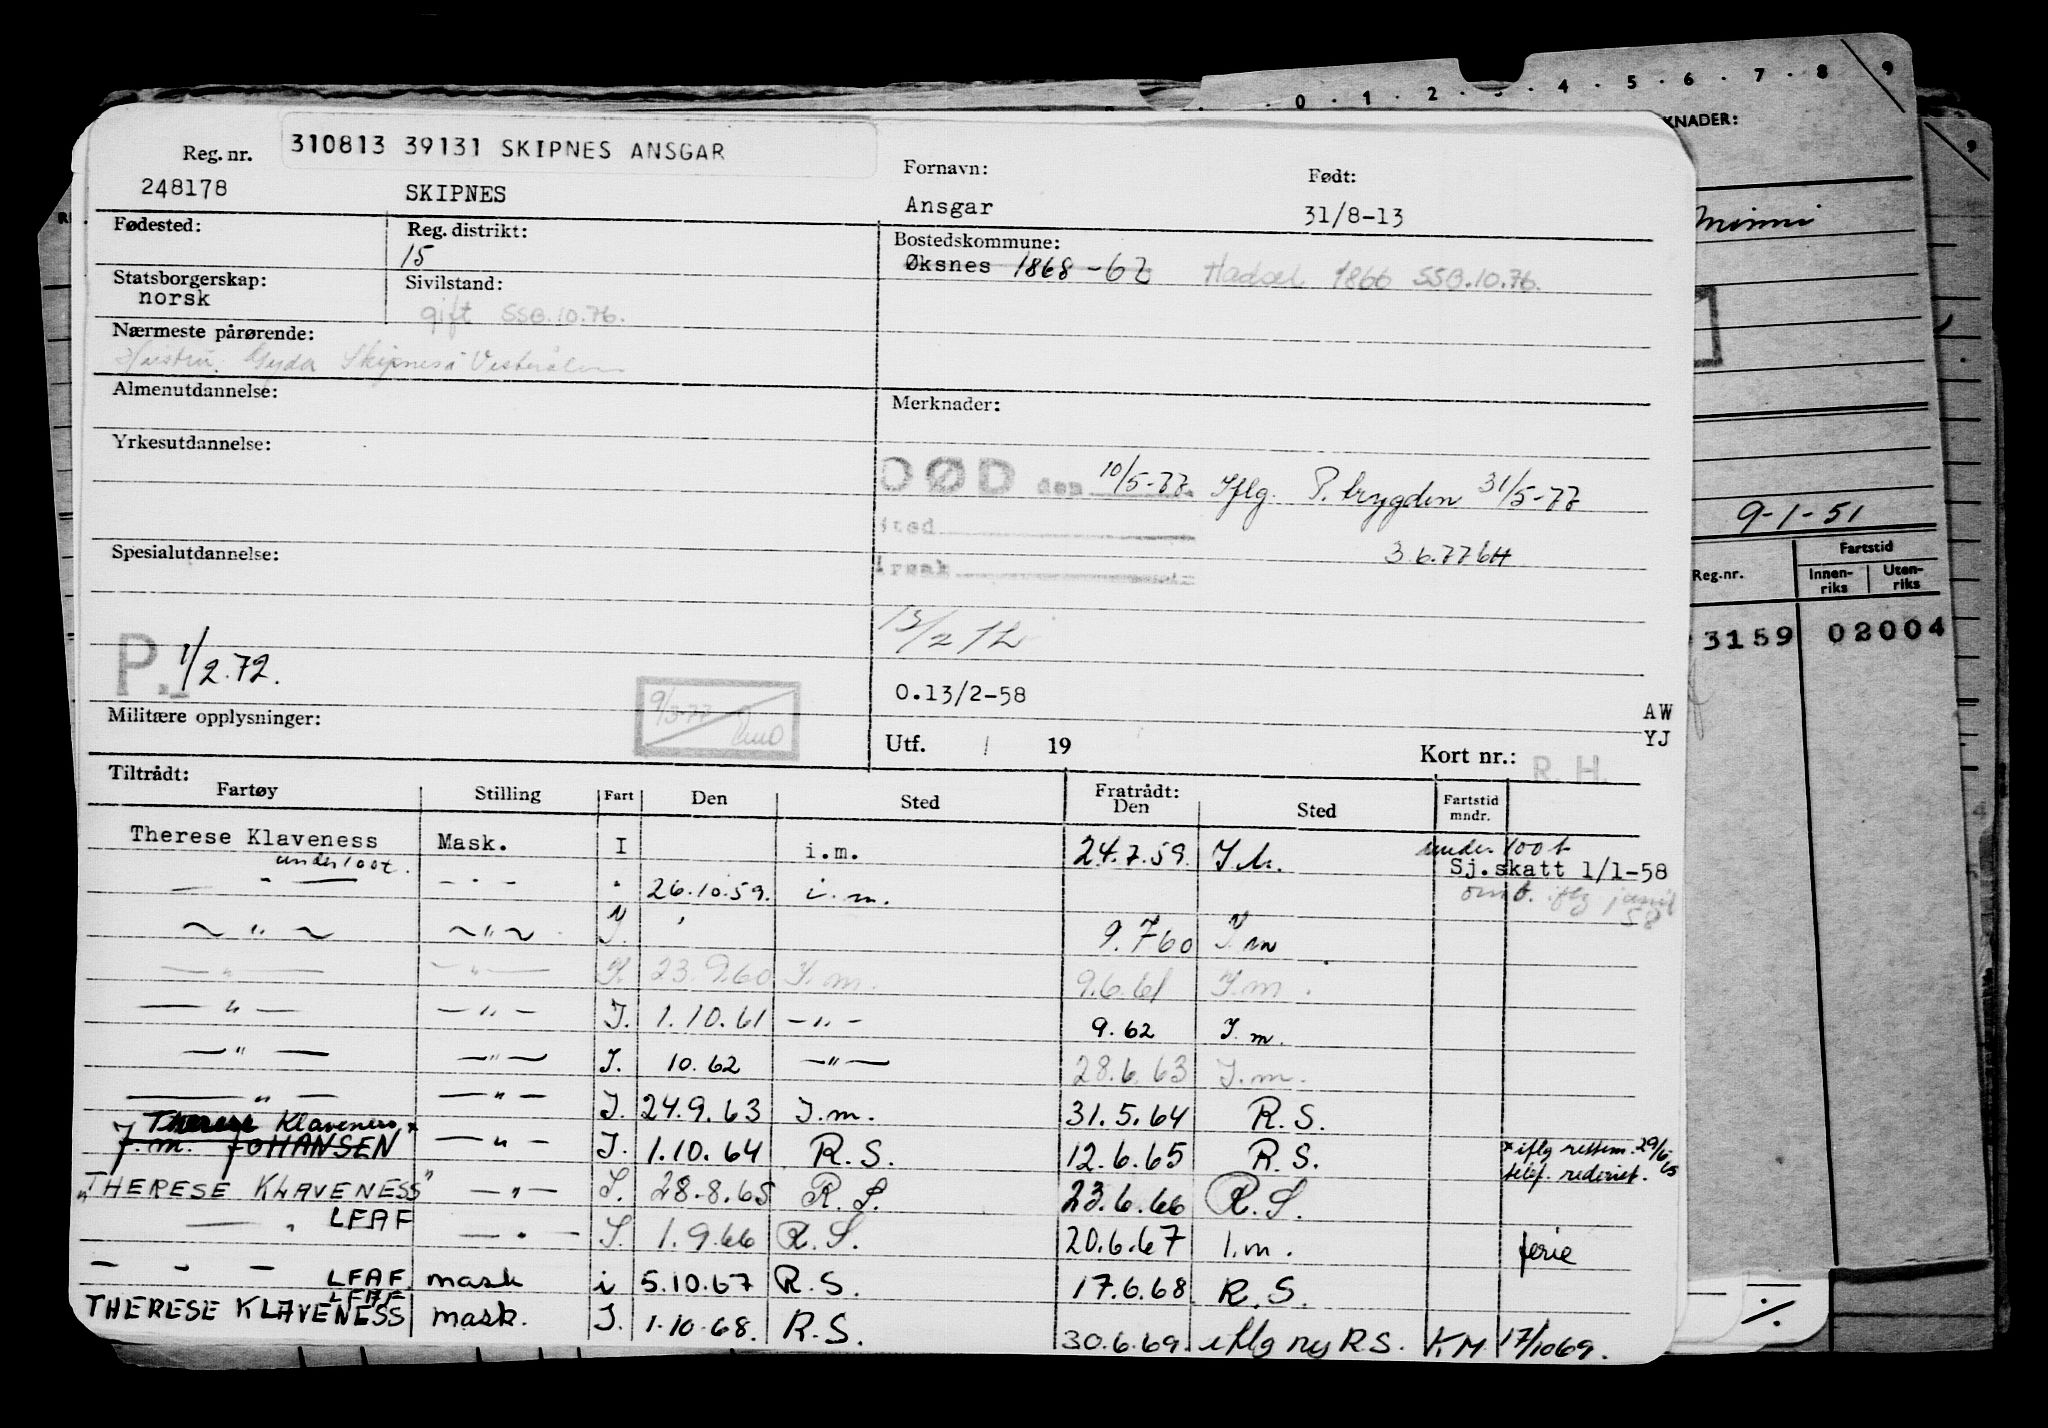 310813 39131 SKIPNES ANSGAR
Reg. nr. 248178 SKIPNES
Fornavn: Ansgar
Født: 31/8-13
Fødested:
Reg. distrikt: 15
Bostedskommune: Øksnes 1868 - 67 Hadsel 1866 SSB.10.76.
Statsborgerskap: norsk
Sivilstand: gift SSB.10.76.
Nærmeste pårørende:
Hustru Skipnes Vesterålen
Almenutdannelse:
Merknader:
Yrkesutdannelse:
DØD den 10/5-77. Iflg. P. brygden 31/5-77
sted
3.6.77
Spesialutdannelse:
årsak
P. 1/2.72.
O.13/2-58
AW
YJ
Militære opplysninger:
Utf. / 19
Kort nr.: R. H.
Tiltrådt: Fratrådt:
Fartøy Stilling Fart Den Sted Den Sted Fartstid mndr.
Therese Klaveness Mask. I i.m. 24.7.59. under 100 t
under 100t. Sj.skatt 1/1-58
— " — - " - " 26.10.59. i.m.
~ " ~ ~ " ~ I. 9.7 60 I.m
— " — — " — I. 23.9.60 I.m. 9.6.61 I.m.
— " — — " — I. 1.10.61 — " — 9.62 I.m.
— " — — " — I. 10.62 — " — 28.6.63 I.m.
— " — — " — I. 24.9.63 I.m. 31.5.64 R.S.
Therese Klaveness *
J.M. JOHANSEN — " — I. 1.10.64 R.S. 12.6.65 R.S. * iflg 29/6-65
telef. rederiet.
"THERESE KLAVENESS" — " — I. 28.8.65 R.S. 23.6.66 R.S.
— " — LFAF — " — I. 1.9.66 R.S. 20.6.67 I.m. ferie
— " — LFAF. mask i 5.10.67 R.S. 17.6.68 R.S.
LFAF
THERESE KLAVENESS mask. I. 1.10.68. R.S. 30.6.69. iflg ny R.S. KM 17/1069.
0 . 1 . 2 . 3 . 4 . 5 . 6 . 7 . 8 9
KNADER:
9
Minni
9-1-51
Fartstid
Reg.nr. Innen-riks Uten-riks
3159 02004